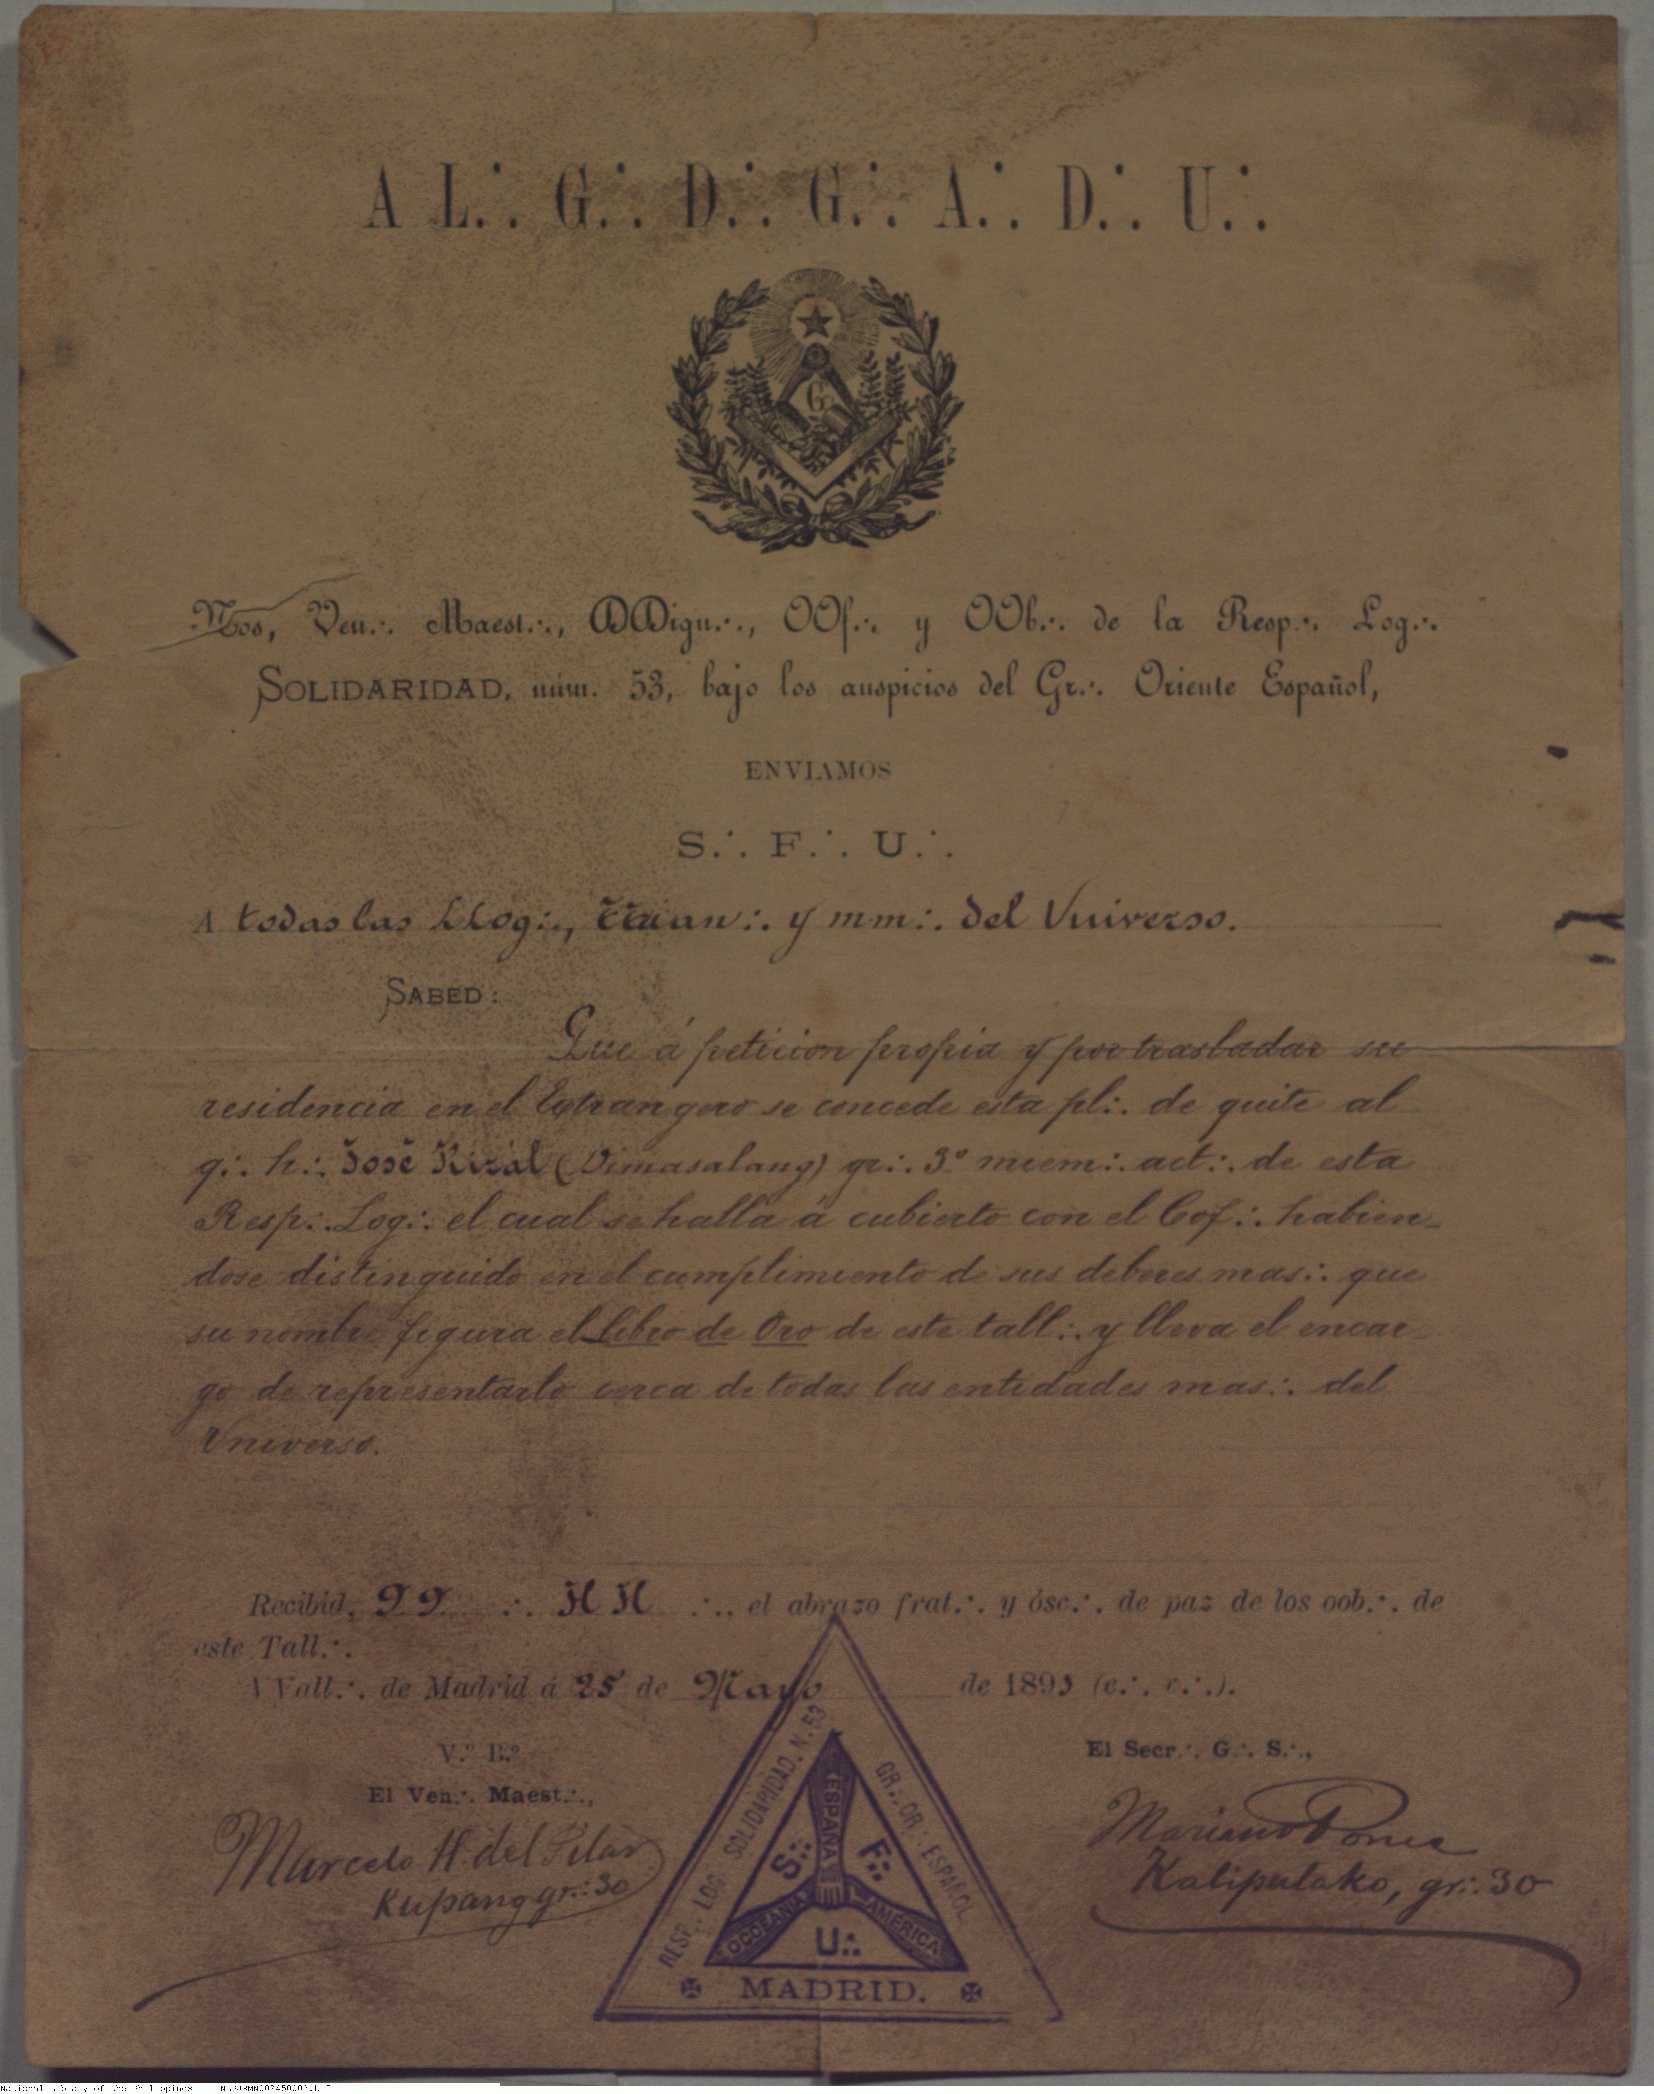 A L∴ G∴ D∴ G∴ A∴ D∴ U∴
G∴
Nos, Ven∴ Maest∴, DDign∴, OOf∴ y OOb∴ de la Resp∴ Log∴
SOLIDARIDAD, núm. 53, bajo los auspicios del Gr∴ Oriente Español,
ENVIAMOS
S∴ F∴ U∴
A todas las LLog∴, y mm∴ del Universo.
SABED:
Que á peticion propia y por trasladar su
residencia en el Extrangero se concede esta pl∴ de quite al
q∴ h∴ José Rizal (Dimasalang) gr∴ 3º miem∴ act∴ de esta
Resp∴ Log∴ el cual se halla á cubierto con el Cof∴ habien-
dose distinguido en el cumplimiento de sus deberes mas∴ que
su nombre figura el Libro de Oro de este tall∴ y lleva el encar-
go de representarlo cerca de todas las entidades mas∴ del
Universo.
Recibid, QQ ∴ HH ∴, el abrazo frat∴ y ósc∴ de paz de los oob∴ de
este Tall∴
VVall∴ de Madrid á 25 de Mayo de 1893 (e∴ v∴).
V.º B.º
El Ven∴ Maest∴,
Marcelo H. del Pilar
Kupang gr∴ 30
El Secr∴ G∴ S∴,
Mariano Ponce
Kalipulako, gr∴ 30
RESP∴ LOG∴ SOLIDARIDAD. N. 53
GR∴ OR∴ ESPAÑOL
ESPAÑA
S∴ F∴
OCDEANIA
AMÉRICA
U∴
MADRID.